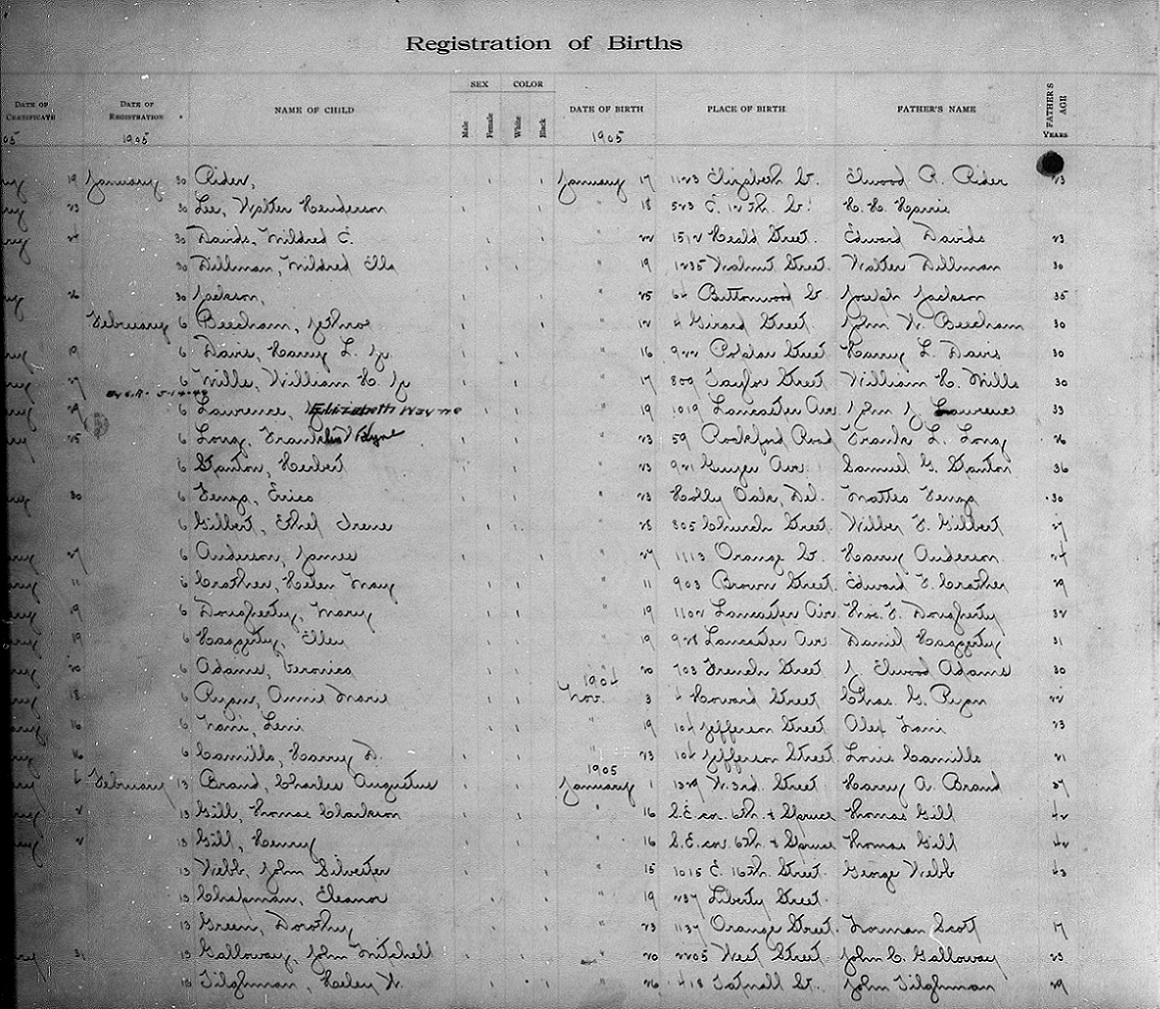 Registration of Births
SEX COLOR
DATE OF CERTIFICATE DATE OF REGISTRATION NAME OF CHILD Male Female White Black DATE OF BIRTH PLACE OF BIRTH FATHER'S NAME FATHER'S AGE YEARS
05 1905 1905
19 January 30 Rider, January 17 1123 Elizabeth St. Elwood R. Rider 23
23 30 Lee, Walter Henderson " 18 523 E. 12th. St. H. H. Harris
24 30 Davids, Mildred E. " 22 1512 Heald Street. Edward Davids 23
30 Dillman, Mildred Ella " 19 1235 Walnut Street. Walter Dillman 30
26 30 Jackson, " 25 64 Buttonwood St Joseph Jackson 35
February 6 Beecham, Jethroe " 12 4 Girard Street. John W. Beecham 30
19 6 Davis, Harry L. Jr. " 16 922 Poplar Street Harry L. Davis 30
27 6 Mills, William H. Jr " 17 809 Taylor Street William H. Mills 30
29 6 Lawrence, Elizabeth Wayne " 19 1019 Lancaster Ave. John J. Lawrence 33
25 6 Long, Franklin Wayne " 23 59 Rockford Road Frank L. Long 26
6 Stanton, Herbert " 23 921 Guyer Ave. Samuel G. Stanton 36
30 6 Fenza, Erico " 23 Holly Oak, Del. Matteo Fenza 30
6 Gilbert, Ethel Irene " 28 805 Church Street. Wilber F. Gilbert 27
27 6 Anderson, James " 27 1113 Orange St. Harry Anderson 24
11 6 Crother, Helen May " 11 903 Brown Street. Edward F. Crother 29
19 6 Dougherty, Mary " 19 1102 Lancaster Ave. Thos. F. Dougherty 32
19 6 Haggerty, Ellen " 19 928 Lancaster Ave Daniel Haggerty 31
20 6 Adams, Veronica " 20 703 French Street J. Elwood Adams 30
1904
18 6 Ryan, Annie Marie Nov. 3 4 Howard Street Chas. G. Ryan 22
16 6 Nani, Leni " 19 104 Jefferson Street Alex Nani 23
16 6 Camillo, Harry D. " 23 104 Jefferson Street Louis Camillo 21
1905
6 February 13 Brand, Charles Augustus January 1 1329 W. 3rd. Street Harry A. Brand 37
2 13 Gill, Thomas Clarkson " 16 S.E. cor. 6th. & Spruce Thomas Gill 42
2 13 Gill, Henry " 16 S.E. cor. 6th. & Spruce Thomas Gill 42
13 Webb, John Silvester " 15 1015 E. 16th. Street. George Webb 43
13 Chapman, Eleanor " 19 237 Liberty Street.
13 Green, Dorothy " 23 1137 Orange Street. Norman Scott 17
31 13 Galloway, John Mitchell " 20 2205 West Street. John C. Galloway 23
13 Tilghman, Harley W. " 26 418 Tatnall St. John Tilghman 29